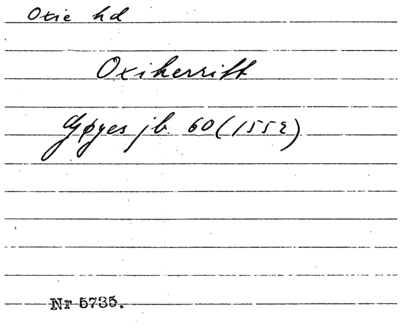 Oxie hd
Oxiherritt
Gøyes jb. 60 (1552)
Nr 5735.